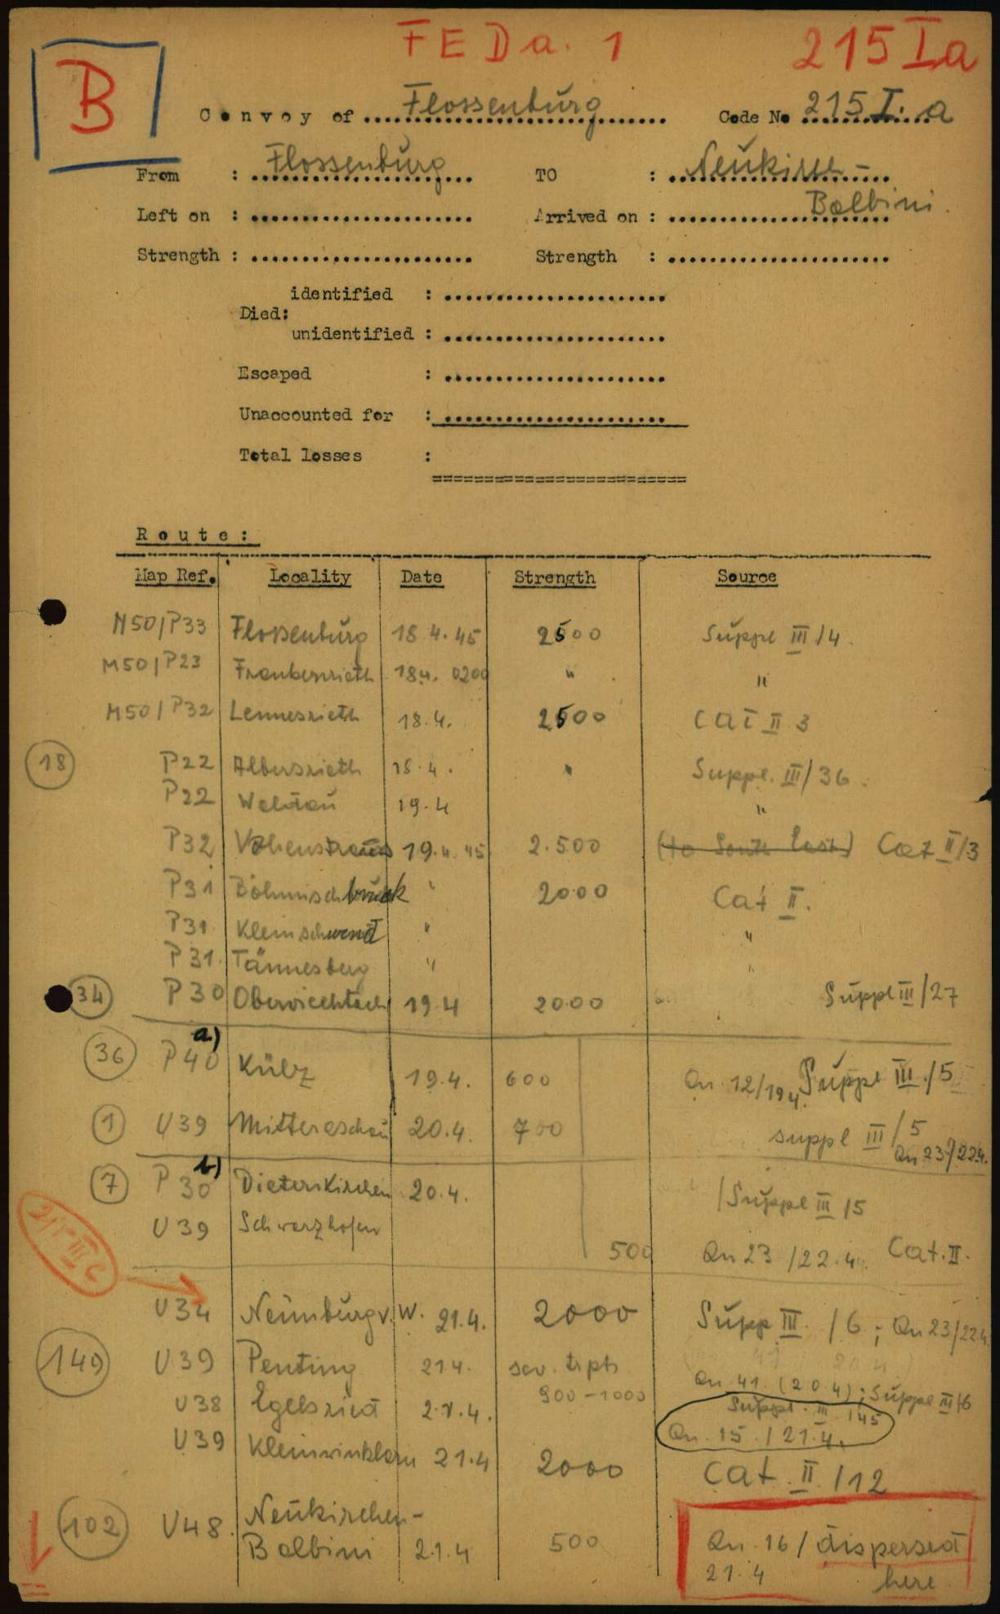 FEDa. 1 215 Ia
B
Convoy of .... Flossenbürg ....... Code No 215 I. a
From : Flossenbürg TO :
Balbini.
Left on : ..................... Arrived on : .....................
Strength : ..................... Strength : .....................
identified : .....................
Died:
unidentified : .....................
Escaped : .....................
Unaccounted for : .....................
Total losses :
Route:
Map Ref. Locality Date Strength Source
M50/P33 Flossenbürg 18.4.45 2500 Suppl III/4.
M50/P23 18.4. 0200 " "
M50/P32 Lennesrieth 18.4. 2500 Cat II 3
18 P22 Albersrieth 18.4. " Suppl. III/36.
P22 Waldau 19.4 "
P32 Vohenstrauss 19.4.45 2.500 (to South East) Cat II/3
P31 Böhmischbruck " 2000 Cat II.
P31 Kleinschwand " "
P31. Tännesberg " "
34 P30 Oberviechtach 19.4 2000 Suppl III/27
a)
36 P40 Külz 19.4. 600 Qu. 12/19.4. Suppl III./5
1 U39 Mitteraschau 20.4. 700 suppl III/5
Qu 23/22.4.
b)
7 P30 Dieterskirchen 20.4. /Suppl III/5
U39 Schwarzhofen
500 Qu 23 /22.4. Cat. II.
215 III c
U34 Neunburg v. W. 21.4. 2000 Supp III. /6; Qu 23/22.4
149 U39 Penting 21.4. sev. trpts
900-1000 Qu 41. (20.4); Suppl III/6
U38 Egelsried 2.1.4. Suppl. III /45
Qu. 15. / 21.4.
U39 Kleinwinklarn 21.4 2000 Cat. II /12
102 U48. Neukirchen-
Balbini 2.1.4 500 Qu. 16/ dispersed
21.4 here